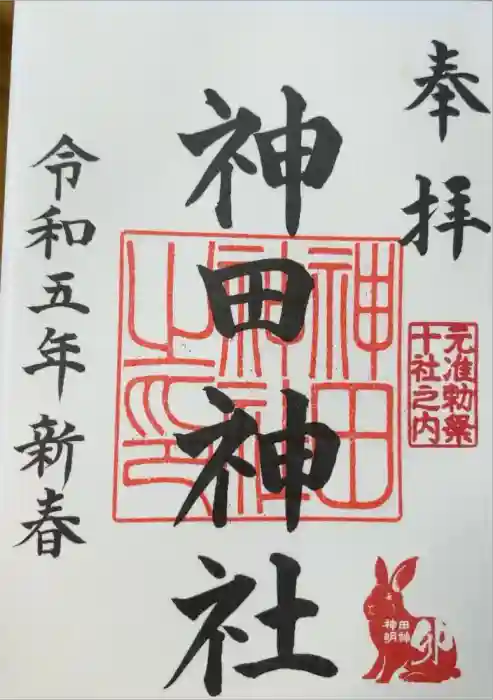 奉拝
元准勅祭
十社之内
神田神社
神田
神社
之印
令和五年新春
神田
明神
卯